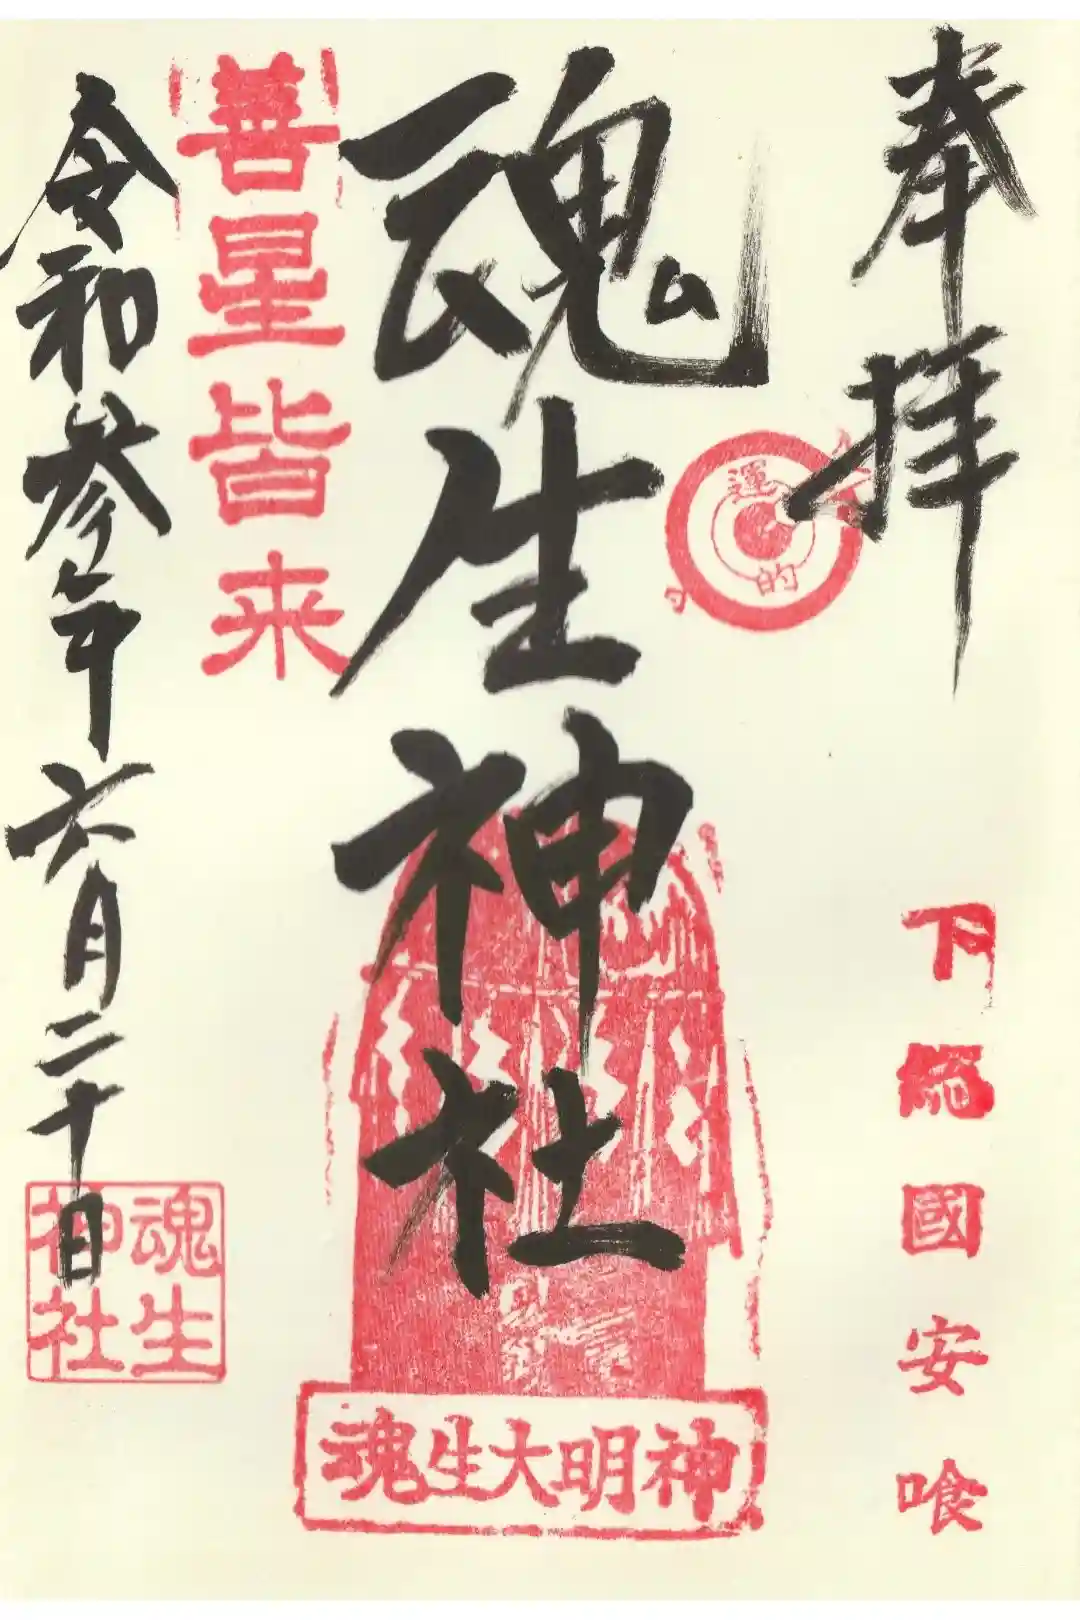 奉拝
下総國安喰
運
的
魂生神社
魂生大明神
善星皆来
令和参年六月二十日
魂生
神社